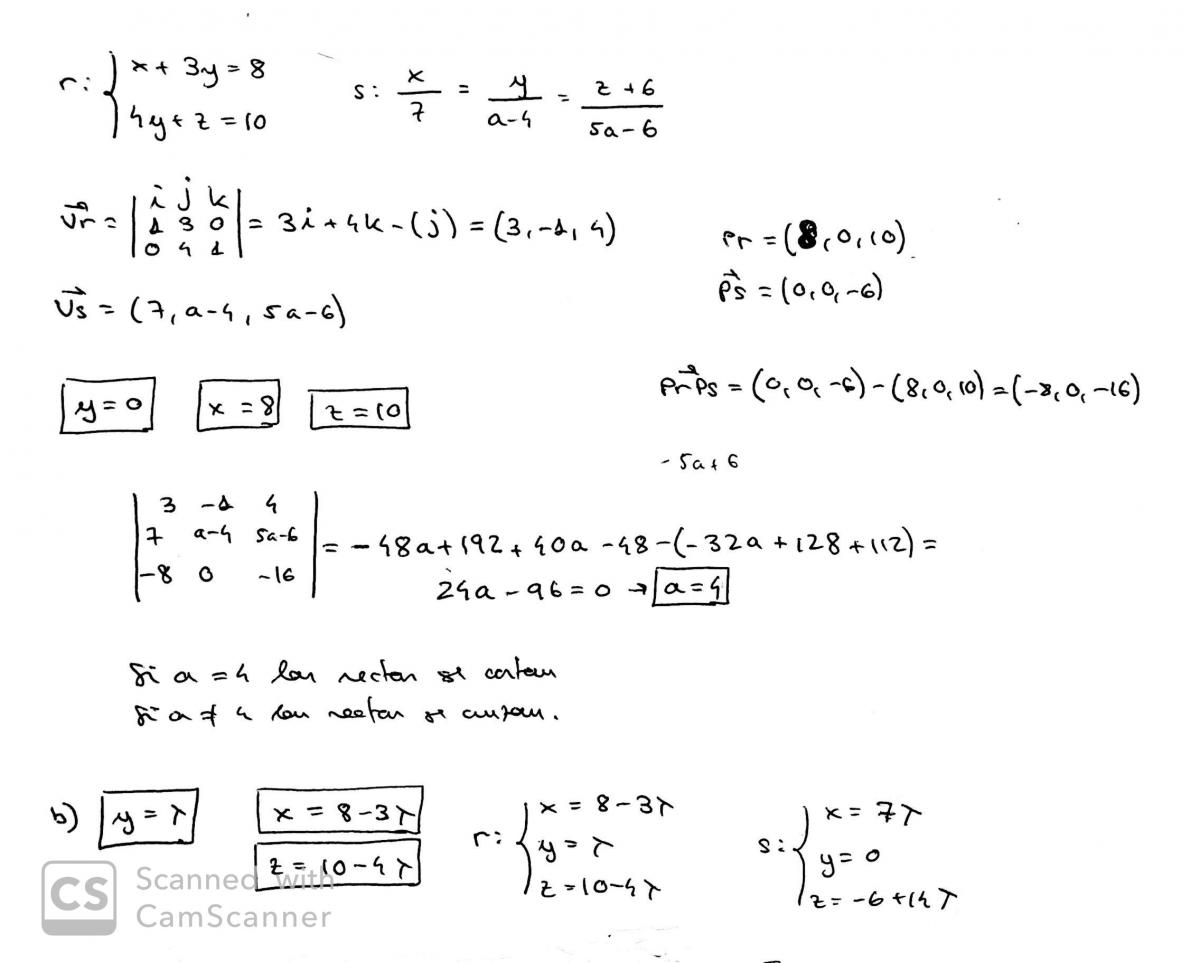 r: { x + 3y = 8
4y + z = 10
s: x/7 = y/(a-4) = (z+6)/(5a-6)
vr = | i j k | 1 3 0 | 0 4 1 | = 3i + 4k - (j) = (3, -1, 4)
Pr = (8, 0, 10)
Ps = (0, 0, -6)
vs = (7, a-4, 5a-6)
y = 0 x = 8 z = 10
PrPs = (0, 0, -6) - (8, 0, 10) = (-8, 0, -16)
- 5a + 6
| 3 -1 4 | 7 a-4 5a-6 | -8 0 -16 | = -48a + 192 + 40a - 48 - (-32a + 128 + 112) =
24a - 96 = 0 → a = 4
Si a = 4 las rectas se cortan
Si a ≠ 4 las rectas se cruzan.
b) y = λ x = 8 - 3λ
z = 10 - 4λ
r: { x = 8 - 3λ
y = λ
z = 10 - 4λ
s: { x = 7λ
y = 0
z = -6 + 14λ
CS Scanned with
CamScanner